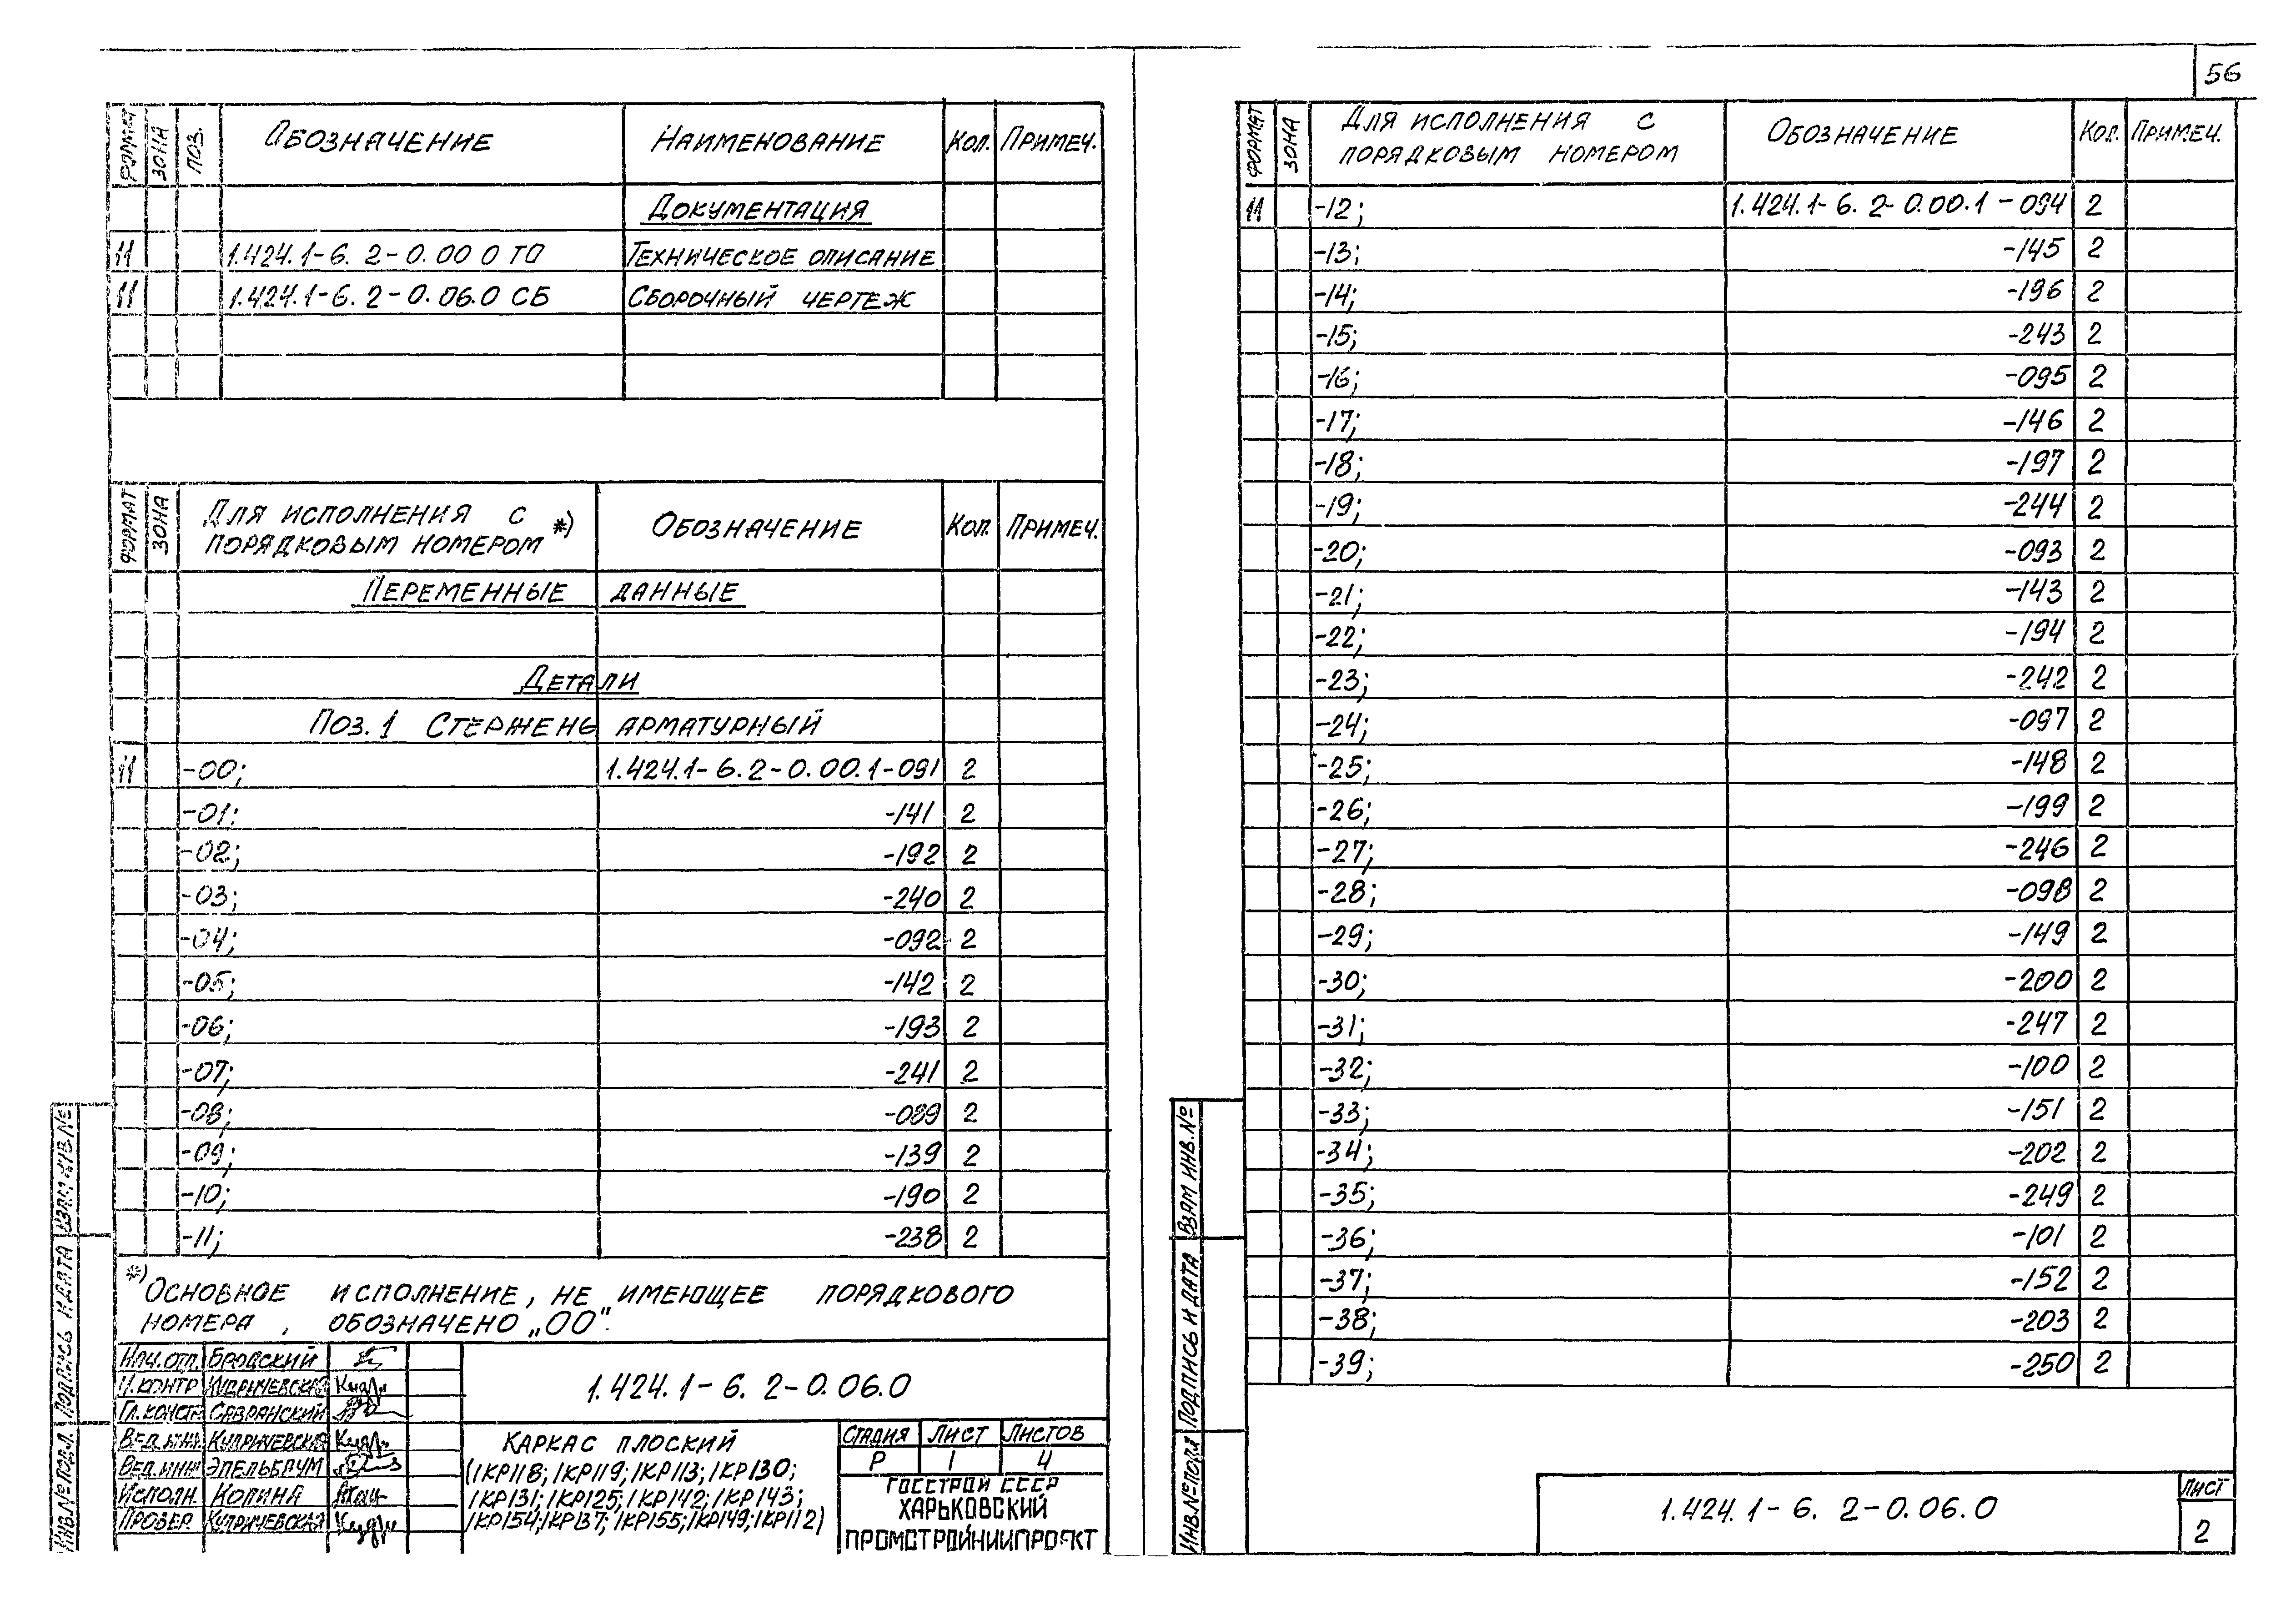 56
ФОРМАТ ЗОНА ПОЗ. ОБОЗНАЧЕНИЕ НАИМЕНОВАНИЕ КОЛ. ПРИМЕЧ.
ДОКУМЕНТАЦИЯ
11 1.424.1-6.2-0.00 0 ТО ТЕХНИЧЕСКОЕ ОПИСАНИЕ
11 1.424.1-6.2-0.06.0 СБ СБОРОЧНЫЙ ЧЕРТЕЖ
ФОРМАТ ЗОНА ДЛЯ ИСПОЛНЕНИЯ С ПОРЯДКОВЫМ НОМЕРОМ *) ОБОЗНАЧЕНИЕ КОЛ. ПРИМЕЧ.
ПЕРЕМЕННЫЕ ДАННЫЕ
ДЕТАЛИ
ПОЗ. 1 СТЕРЖЕНЬ АРМАТУРНЫЙ
11 -00; 1.424.1-6.2-0.00.1-091 2
-01; -141 2
-02; -192 2
-03; -240 2
-04; -092 2
-05; -142 2
-06; -193 2
-07; -241 2
-08; -089 2
-09; -139 2
-10; -190 2
-11; -238 2
*) ОСНОВНОЕ ИСПОЛНЕНИЕ, НЕ ИМЕЮЩЕЕ ПОРЯДКОВОГО
НОМЕРА, ОБОЗНАЧЕНО „00".
НАЧ.ОТД. БРОДСКИЙ
Н.КОНТР КУПРИЧЕВСКАЯ
ГЛ.КОНСТР. САВРАНСКИЙ
ВЕД.ИНЖ. КУПРИЧЕВСКАЯ
ВЕД.ИНЖ ЭПЕЛЬБАУМ
ИСПОЛН. КОПИНА
ПРОВЕР. КУПРИЧЕВСКАЯ
1.424.1-6.2-0.06.0
КАРКАС ПЛОСКИЙ
(1КР118; 1КР119; 1КР113; 1КР130;
1КР131; 1КР125; 1КР142; 1КР143;
1КР154; 1КР137; 1КР155; 1КР149; 1КР112)
СТАДИЯ ЛИСТ ЛИСТОВ
Р 1 4
ГОССТРОЙ СССР
ХАРЬКОВСКИЙ
ПРОМСТРОЙНИИПРОЕКТ
ИНВ.№ПОДЛ. ПОДПИСЬ И ДАТА ВЗАМ ИНВ.№
ФОРМАТ ЗОНА ДЛЯ ИСПОЛНЕНИЯ С ПОРЯДКОВЫМ НОМЕРОМ ОБОЗНАЧЕНИЕ КОЛ. ПРИМЕЧ.
11 -12; 1.424.1-6.2-0.00.1-094 2
-13; -145 2
-14; -196 2
-15; -243 2
-16; -095 2
-17; -146 2
-18; -197 2
-19; -244 2
-20; -093 2
-21; -143 2
-22; -194 2
-23; -242 2
-24; -097 2
-25; -148 2
-26; -199 2
-27; -246 2
-28; -098 2
-29; -149 2
-30; -200 2
-31; -247 2
-32; -100 2
-33; -151 2
-34; -202 2
-35; -249 2
-36; -101 2
-37; -152 2
-38; -203 2
-39; -250 2
ИНВ.№ПОДЛ ПОДПИСЬ И ДАТА ВЗАМ ИНВ.№
1.424.1-6.2-0.06.0
ЛИСТ
2